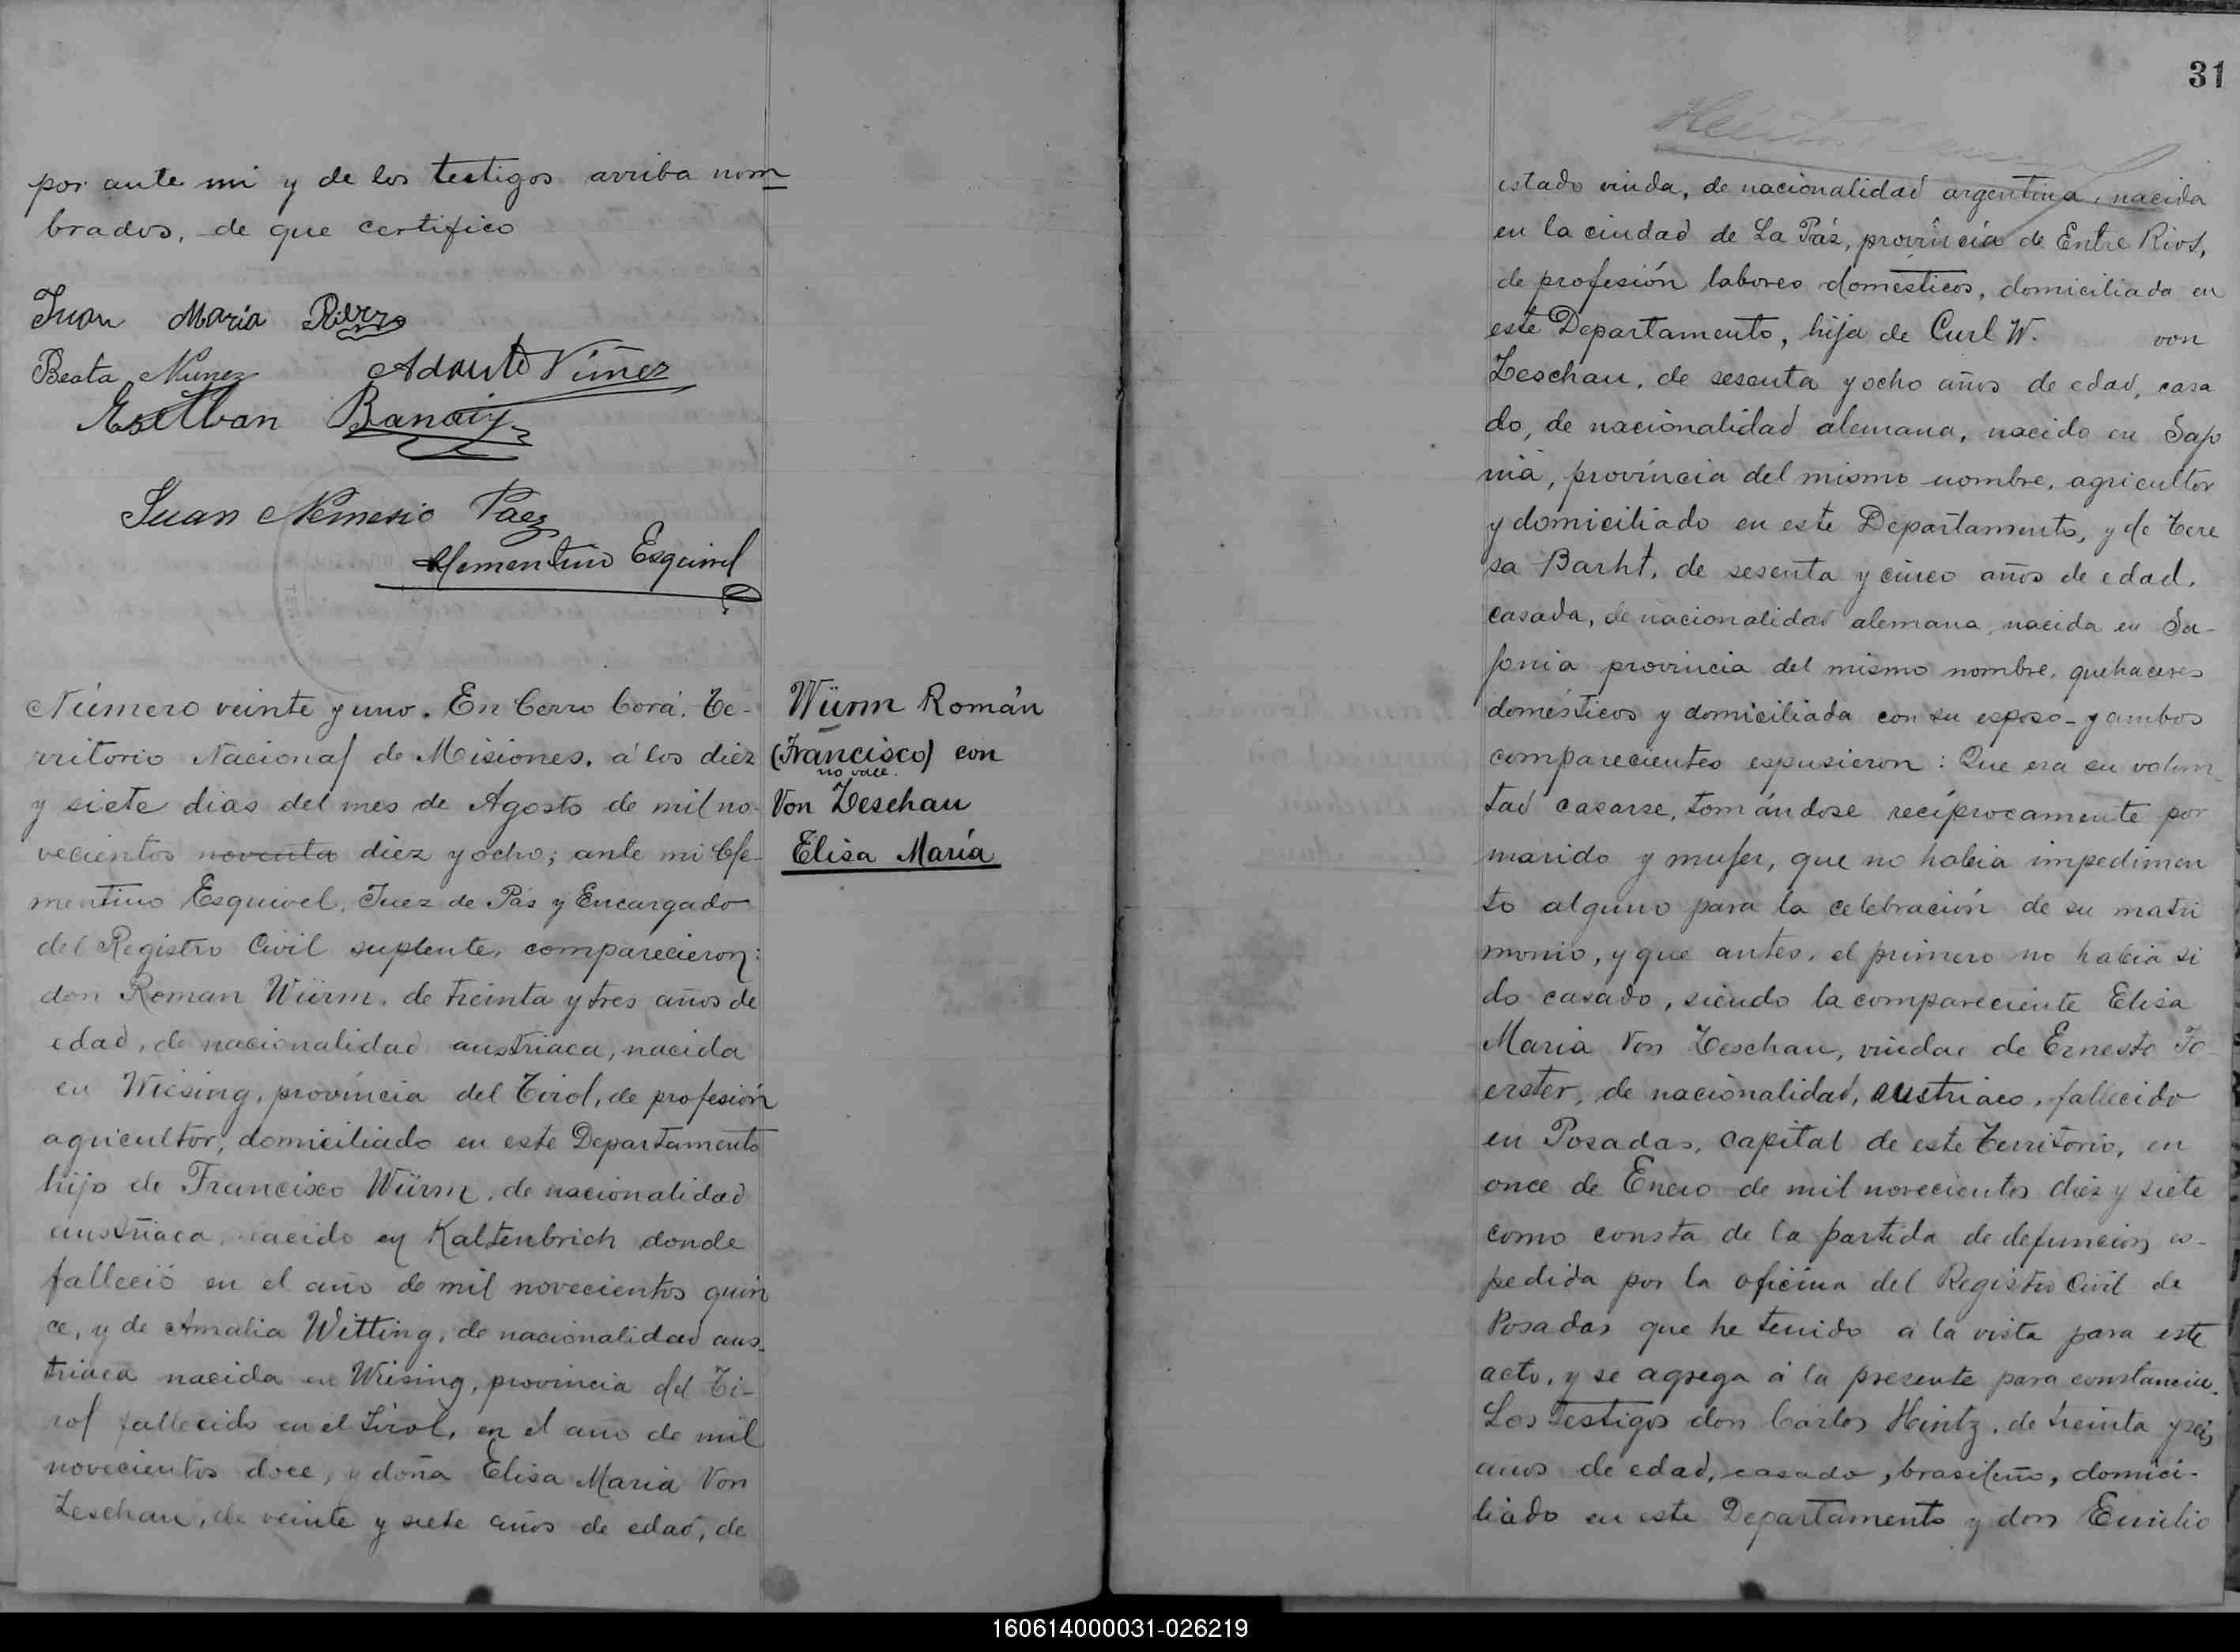 por ante mi y de los testigos arriba nom
brados, de que certifico
Juan María
Beata Nuñez
Esteban
Juan Nemesio Paez
Clementino Esquivel
Número veinte y uno. En Cerro Corá. Te-
rritorio Nacional de Misiones. á los diez
y siete dias del mes de Agosto de mil no-
vecientos noventa diez y ocho; ante mi Cle-
mentino Esquivel. Juez de Pás y Encargado
del Registro Civil suplente, comparecieron:
don Roman Würm. de treinta y tres años de
edad, de nacionalidad austriaca, nacida
en Wiesing, provincia del Tirol, de profesión
agricultor, domiciliado en este Departamento
hijo de Francisco Würm, de nacionalidad
austriaca, nacido en Kaltenbrich donde
falleció en el año de mil novecientos quin
ce, y de Amalia Witting, de nacionalidad aus-
triaca nacida en Wiesing, provincia del Ti-
rol fallecido en el Tirol, en el año de mil
novecientos doce, y doña Elisa Maria Von
Zeschau, de veinte y siete años de edad, de
Würm Román
(Francisco) con
no vale.
Von Zeschau
Elisa María
31
estado viuda, de nacionalidad argentina, nacida
en la ciudad de La Páz, provincia de Entre Rios,
de profesión labores domésticos, domiciliada en
este Departamento, hija de Curl W. von
Zeschau, de sesenta y ocho años de edad, casa
do, de nacionalidad alemana, nacido en Sajo
nia, provincia del mismo nombre, agricultor
y domiciliado en este Departamento, y de Tere
sa Barht, de sesenta y cinco años de edad,
casada, de nacionalidad alemana, nacida en Sa-
jonia provincia del mismo nombre, quehaceres
domésticos y domiciliada con su esposo - y ambos
comparecientes espusieron: Que era su volun-
tad casarse, tomándose recíprocamente por
marido y mujer, que no habia impedimen
to alguno para la celebración de su matri
monio, y que antes, el primero no habia si
do casado, siendo la compareciente Elisa
Maria Von Zeschau, viudae de Ernesto Fo-
erster, de nacionalidad, austriaco, fallecido
en Posadas, capital de este Territorio, en
once de Enero de mil novecientos diez y siete
como consta de la partida de defuncion es-
pedida por la oficina del Registro Civil de
Posadas que he tenido á la vista para este
acto, y se agrega á la presente para constancia.
Los Testigos don Cárlos Hintz, de treinta y seis
años de edad, casado, brasileño, domici-
liado en este Departamento y don Emilio
160614000031-026219